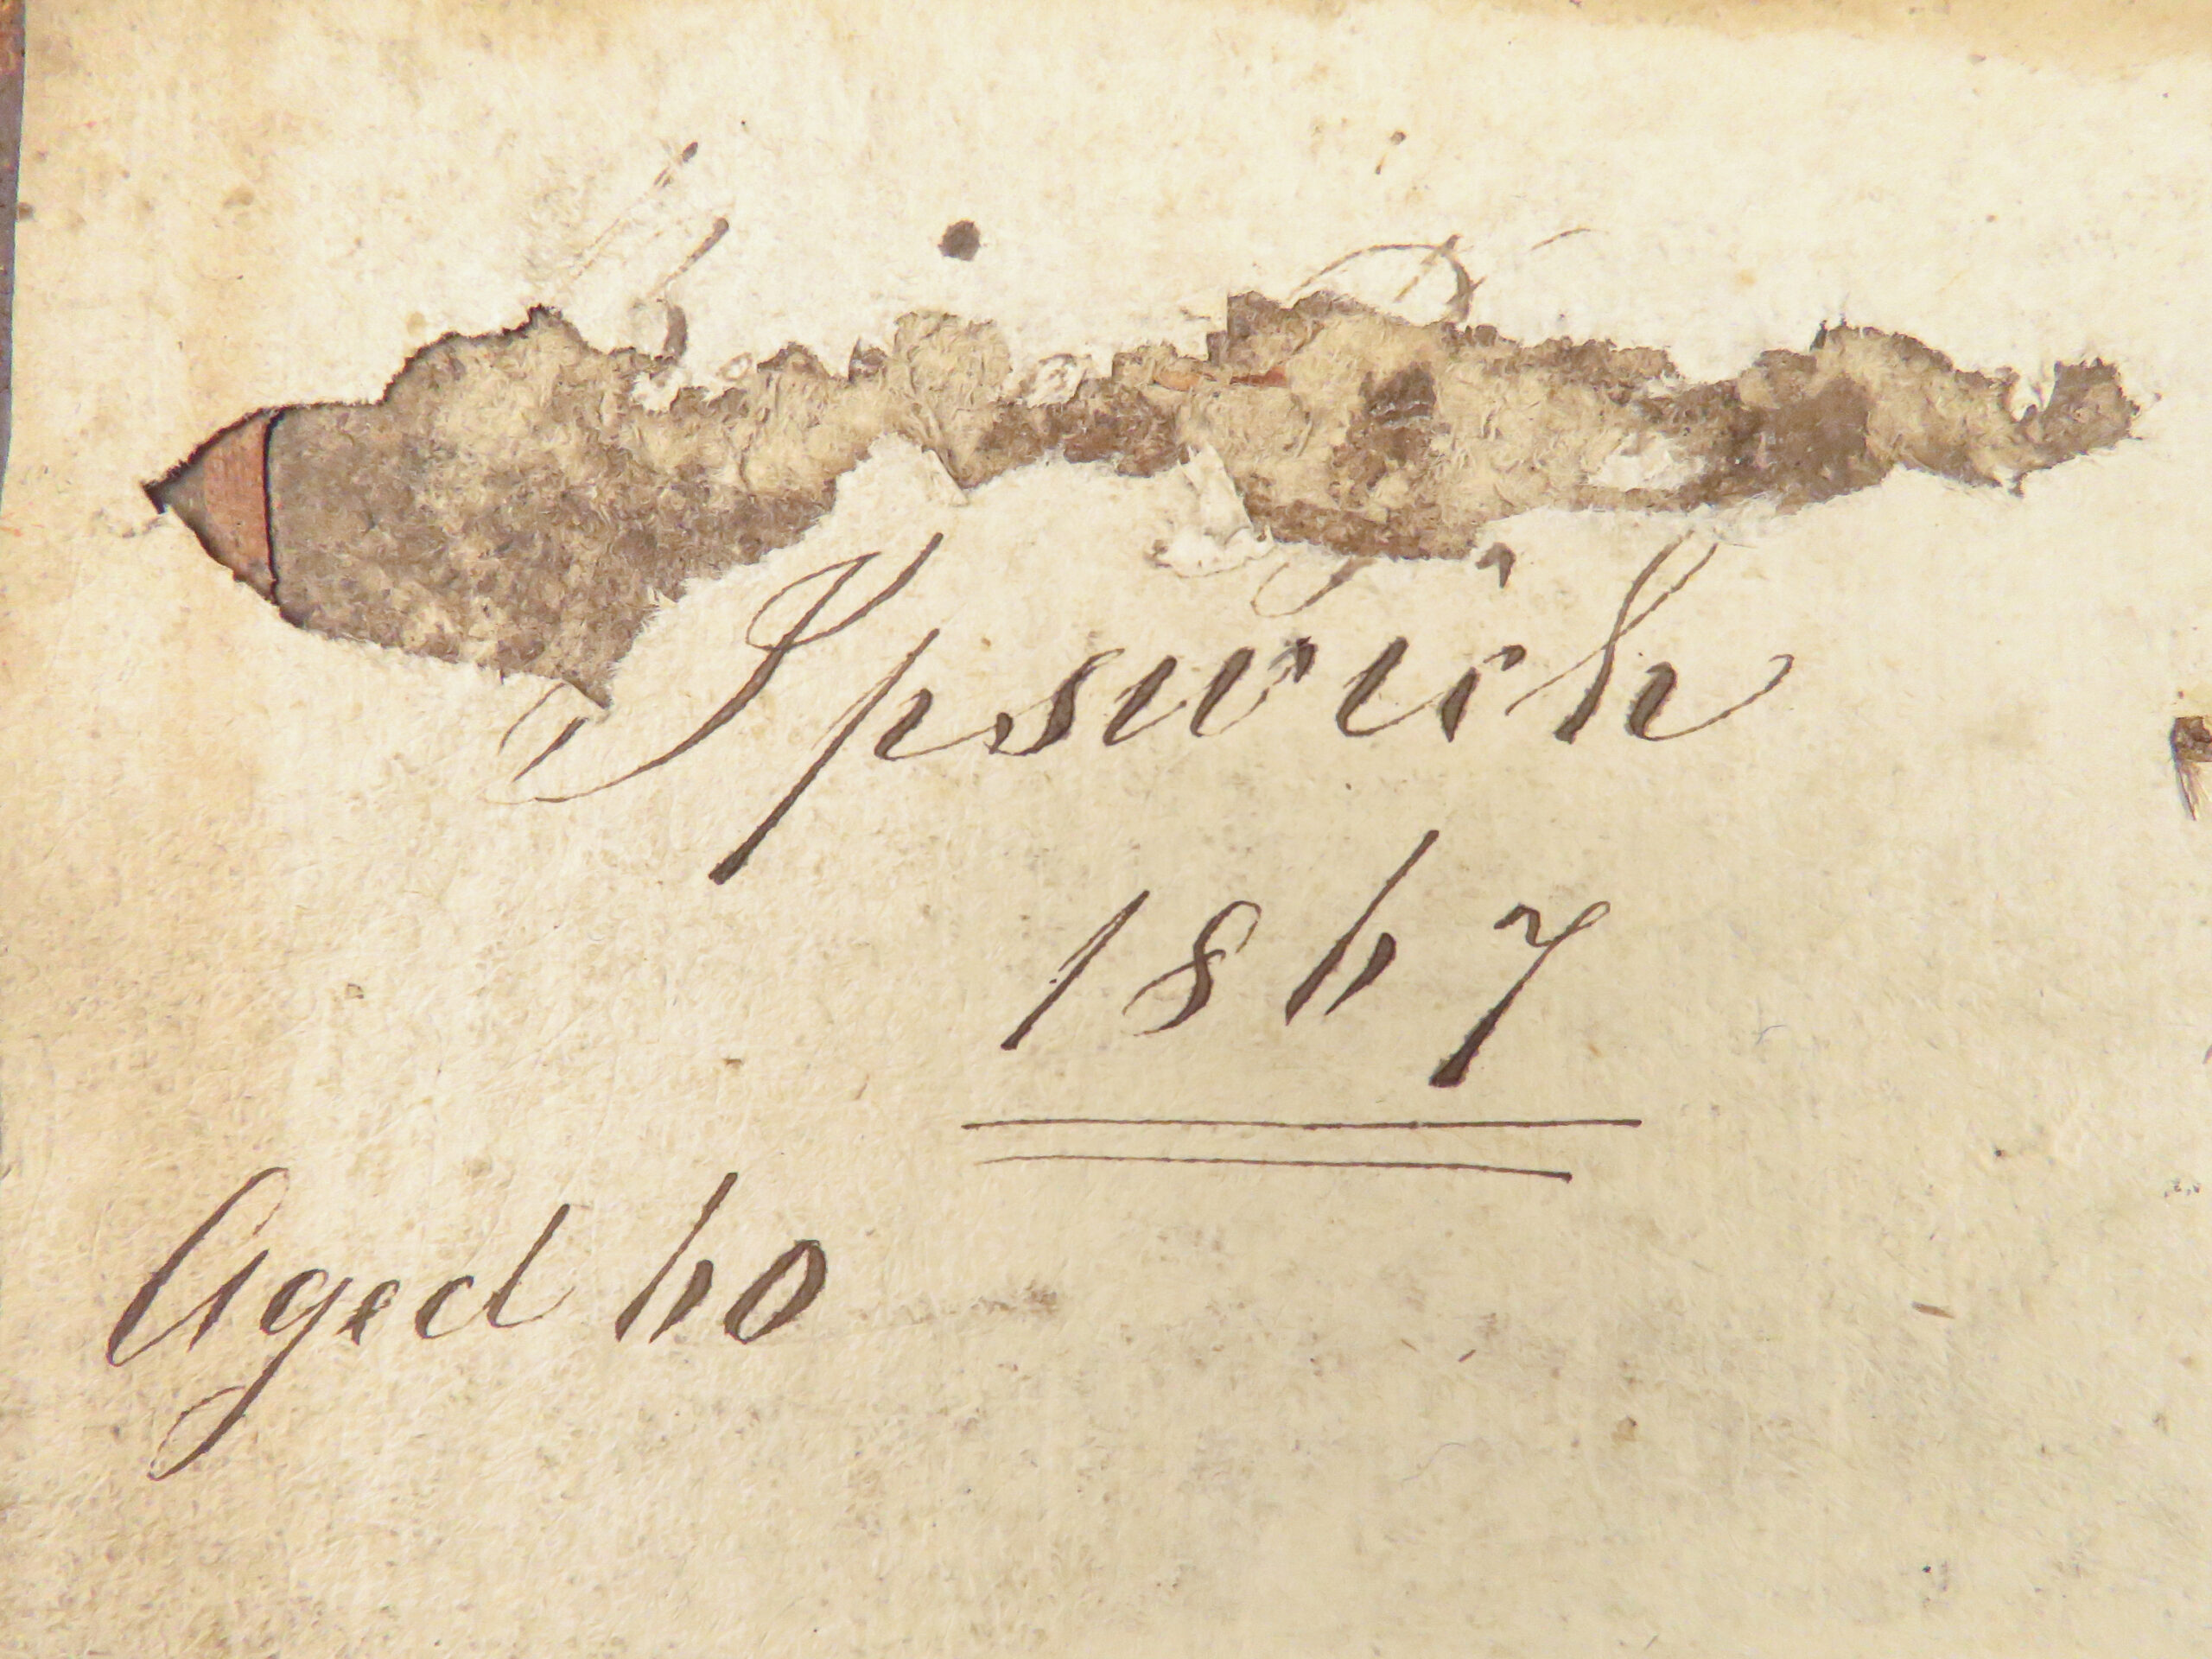 Ipswich
1867
Aged 60